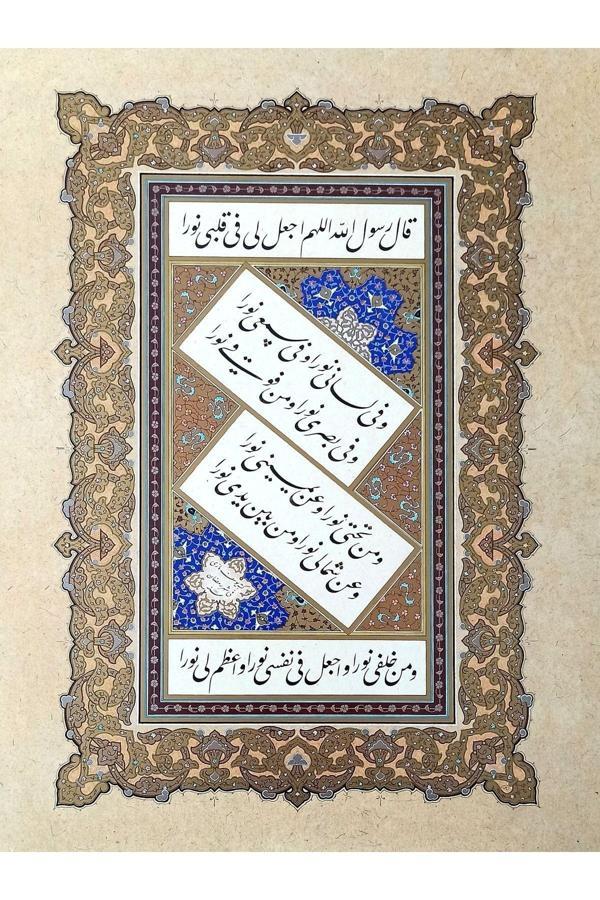 قال رسول الله اللهم اجعل لی فی قلبی نورا
وفی لسانی نورا وفی سمعی نورا
وفی بصری نورا ومن فوقی نورا
ومن تحتی نورا وعن یمینی نورا
وعن شمالی نورا ومن بین یدی نورا
ومن خلفی نورا واجعل فی نفسی نورا واعظم لی نورا